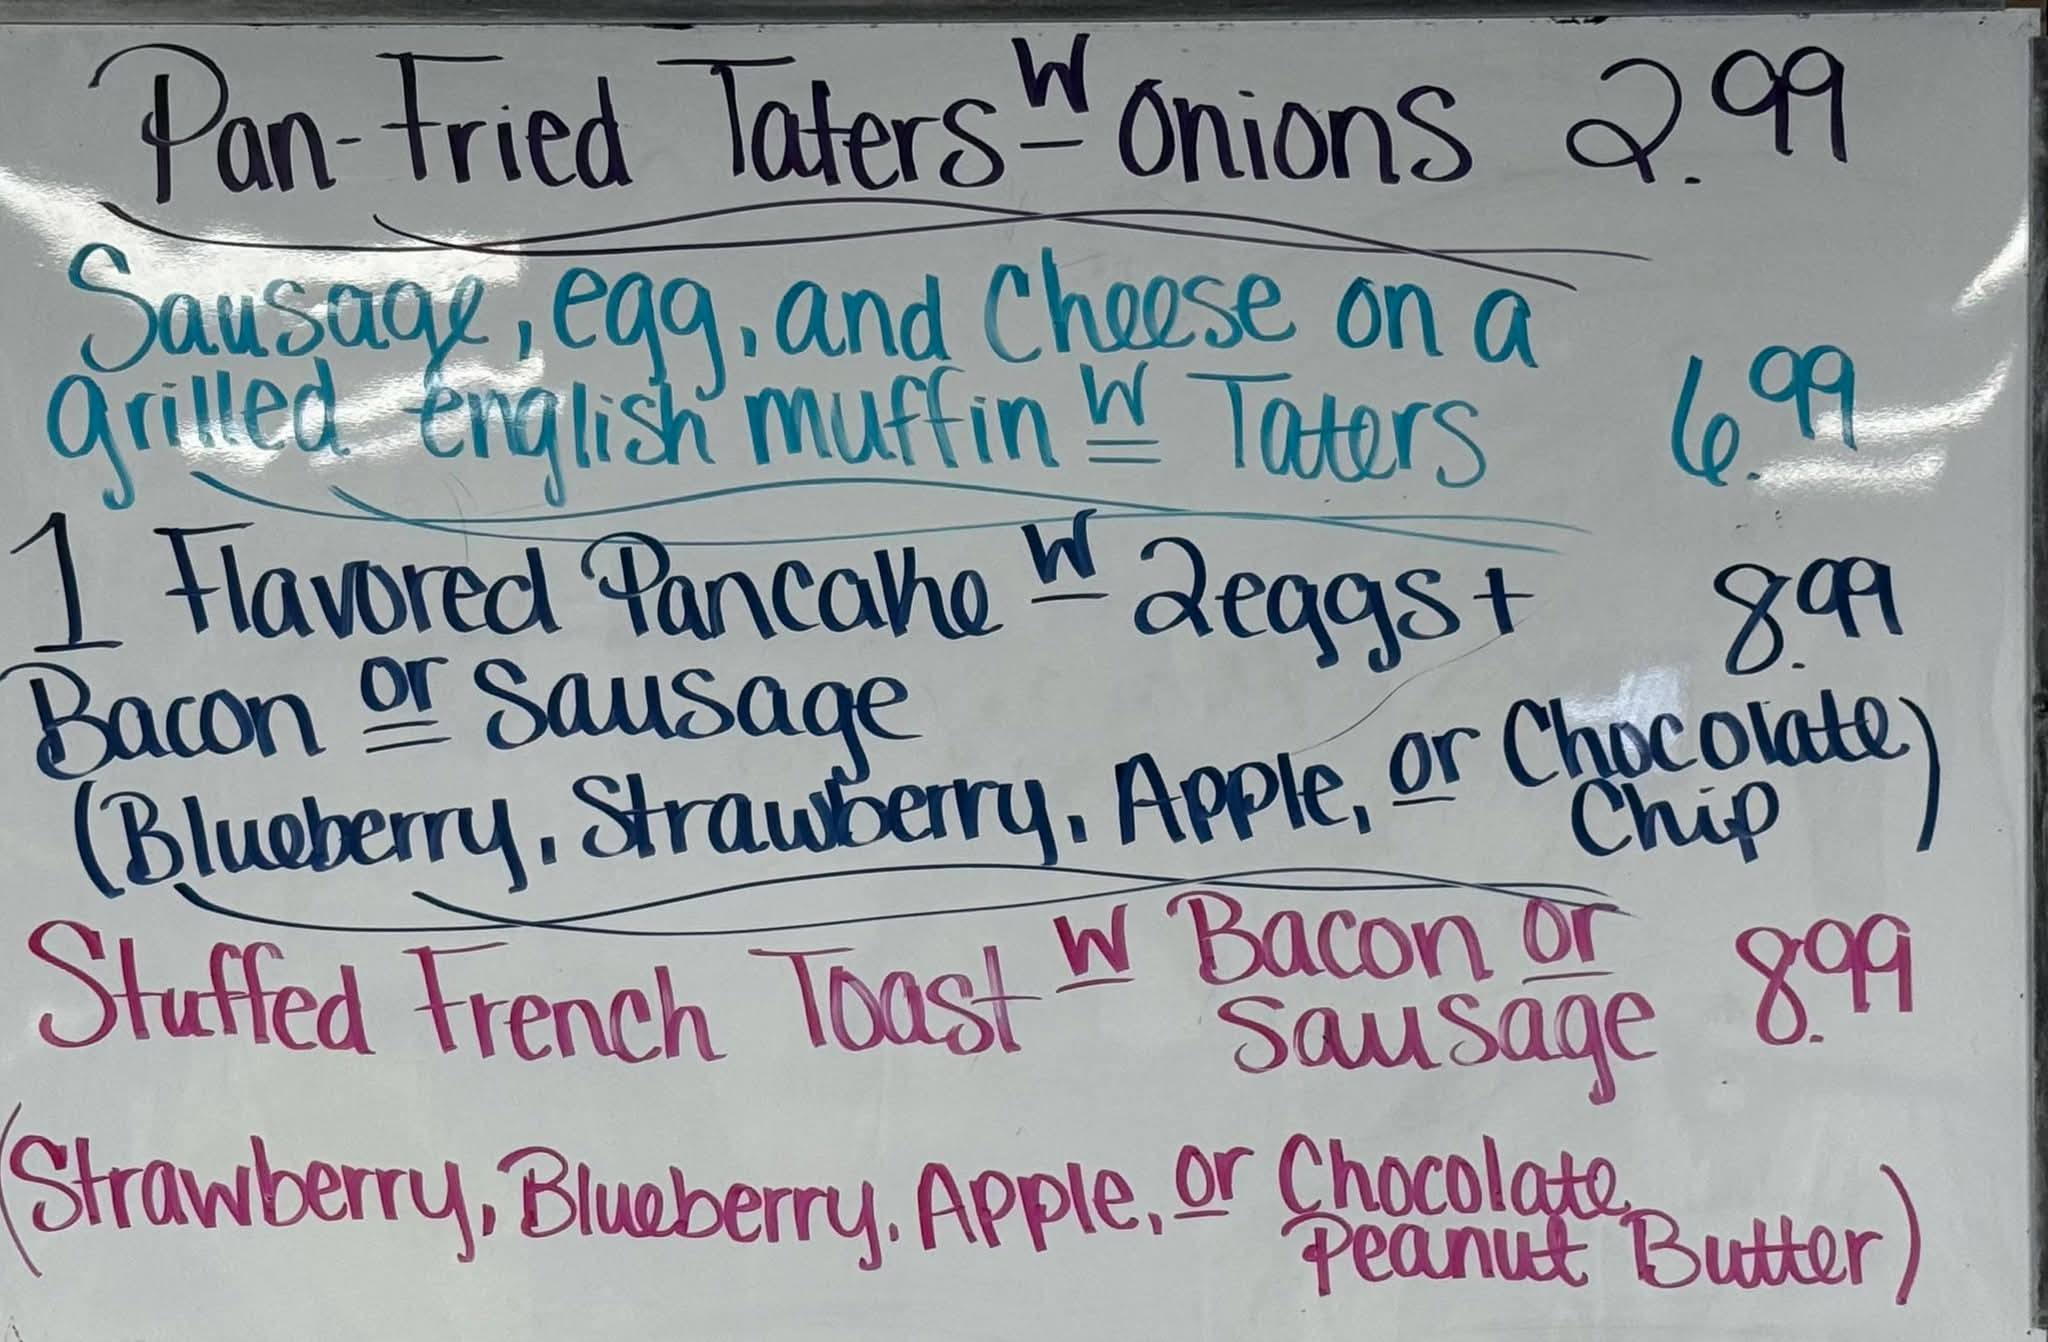 Pan-Fried Taters W Onions 2.99
Sausage, egg, and Cheese on a
grilled english muffin W Taters 6.99
1 Flavored Pancake W 2 eggs + 8.99
Bacon or Sausage
(Blueberry, Strawberry, Apple, or Chocolate
Chip)
Stuffed French Toast W Bacon or
Sausage 8.99
(Strawberry, Blueberry, Apple, or Chocolate
Peanut Butter)